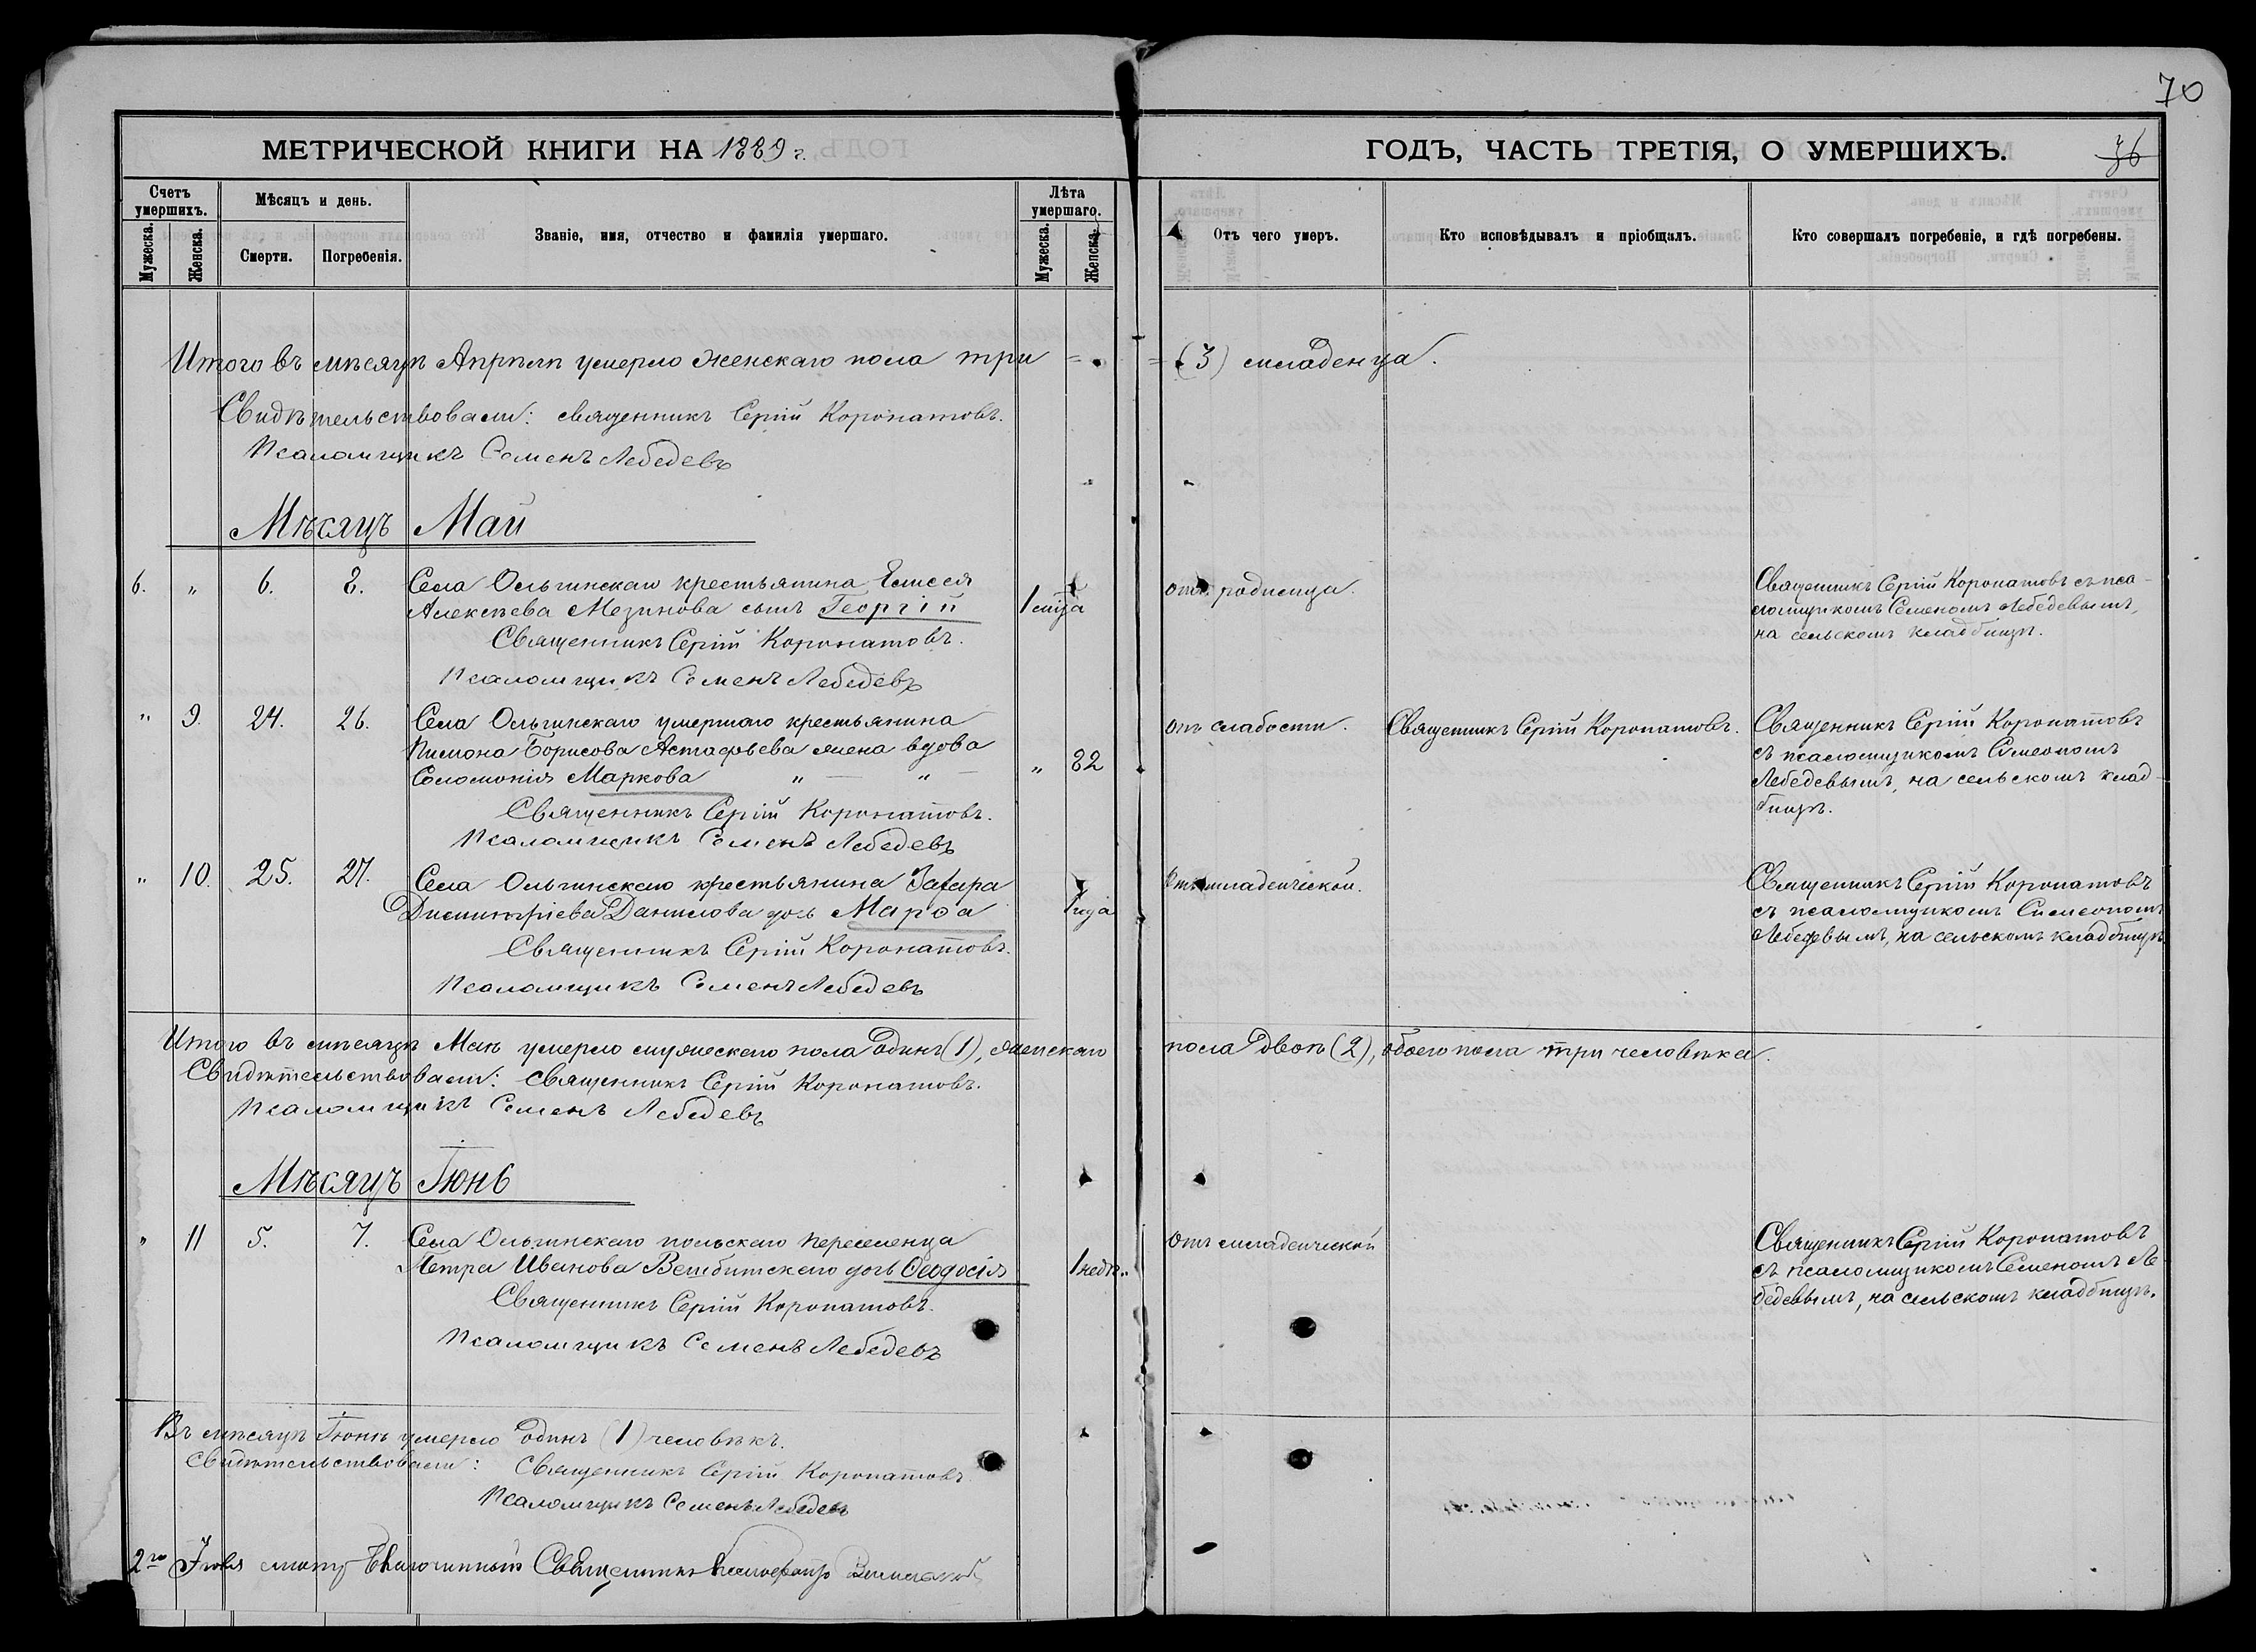 70
МЕТРИЧЕСКОЙ КНИГИ НА 1889 г.
ГОДЪ, ЧАСТЬ ТРЕТІЯ, О УМЕРШИХЪ.
36
Счетъ умершихъ.
Мѣсяцъ и день.
Званіе, имя, отчество и фамилія умершаго.
Лѣта умершаго.
Отъ чего умеръ.
Кто исповѣдывалъ и пріобщалъ.
Кто совершалъ погребеніе, и гдѣ погребены.
Мужеска.
Женска.
Смерти.
Погребенія.
Мужеска.
Женска.
Итого въ мѣсяцѣ Апрѣлѣ умерло женскаго пола три = = (3) младенца.
Свидѣтельствовали: священникъ Сергій Коронатовъ.
Псаломщикъ Семенъ Лебедевъ
Мѣсяцъ Май
6. " 6. 8. Села Ольгинскаго крестьянина Елисея
Алексѣева Мезинова сынъ Георгій
1 мцѧ
Священникъ Сергій Коронатовъ.
Псаломщикъ Семенъ Лебедевъ
отъ родимца.
Священникъ Сергій Коронатовъ съ пса-
ломщикомъ Семеномъ Лебедевымъ,
на сельскомъ кладбищѣ.
" 9. 24. 26. Села Ольгинскаго умершаго крестьянина
Пимона Борисова Астафьева жена вдова
Соломонія Маркова " — " —
" 82
Священникъ Сергій Коронатовъ.
Псаломщикъ Семенъ Лебедевъ
отъ слабости.
Священникъ Сергій Коронатовъ.
Священникъ Сергій Коронатовъ
съ псаломщикомъ Симеономъ
Лебедевымъ, на сельскомъ клад-
бищѣ.
" 10. 25. 27. Села Ольгинскаго крестьянина Захара
Димитріева Данилова дочь Марѳа
1 года
Священникъ Сергій Коронатовъ.
Псаломщикъ Семенъ Лебедевъ
Отъ младенческой.
Священникъ Сергій Коронатовъ
съ псаломщикомъ Симеономъ
Лебедевымъ, на сельскомъ кладбищѣ
Итого въ мѣсяцѣ Маѣ умерло мужескаго пола одинъ (1), женскаго пола двое (2), обоего пола три человѣка.
Свидѣтельствовали: священникъ Сергій Коронатовъ.
Псаломщикъ Семенъ Лебедевъ
Мѣсяцъ Іюнь
" 11 5. 7. Села Ольгинскаго польскаго переселенца
Петра Иванова дочь Ѳеодосія
1 нед.
Священникъ Сергій Коронатовъ.
Псаломщикъ Семенъ Лебедевъ
Отъ младенческой
Священникъ Сергій Коронатовъ
съ псаломщикомъ Семеномъ Ле-
бедевымъ, на сельскомъ кладбищѣ.
Въ мѣсяцѣ Іюнѣ умерло одинъ (1) человѣкъ.
Свидѣтельствовали: Священникъ Сергій Коронатовъ
Псаломщикъ Семенъ Лебедевъ
2го Благочинный Священникъ